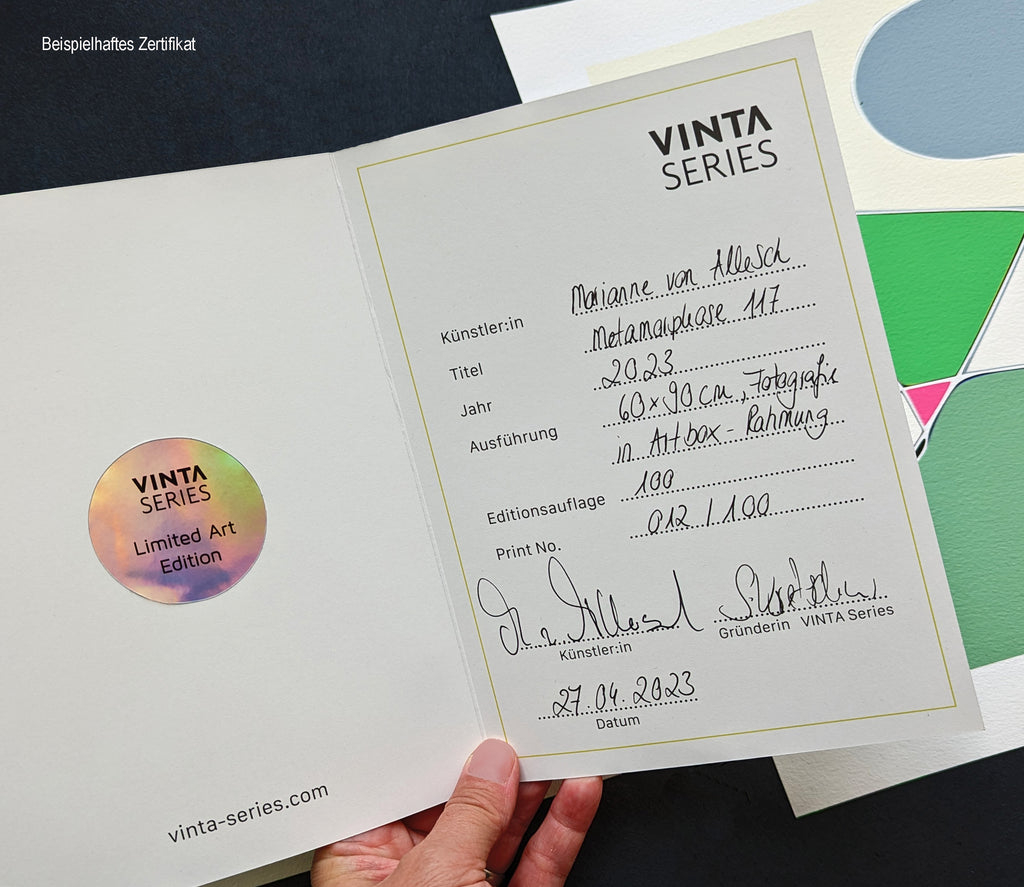 Beispielhaftes Zertifikat
VINTA
SERIES
Limited Art
Edition
vinta-series.com
VINTA
SERIES
Künstler:in Marianne von Allesch
Titel Metamorphose 117
Jahr 2023
Ausführung 60 x 90 cm, Fotografie
in Artbox - Rahmung
Editionsauflage 100
Print No. 012 / 100
Künstler:in
Gründerin VINTA Series
27.04.2023
Datum